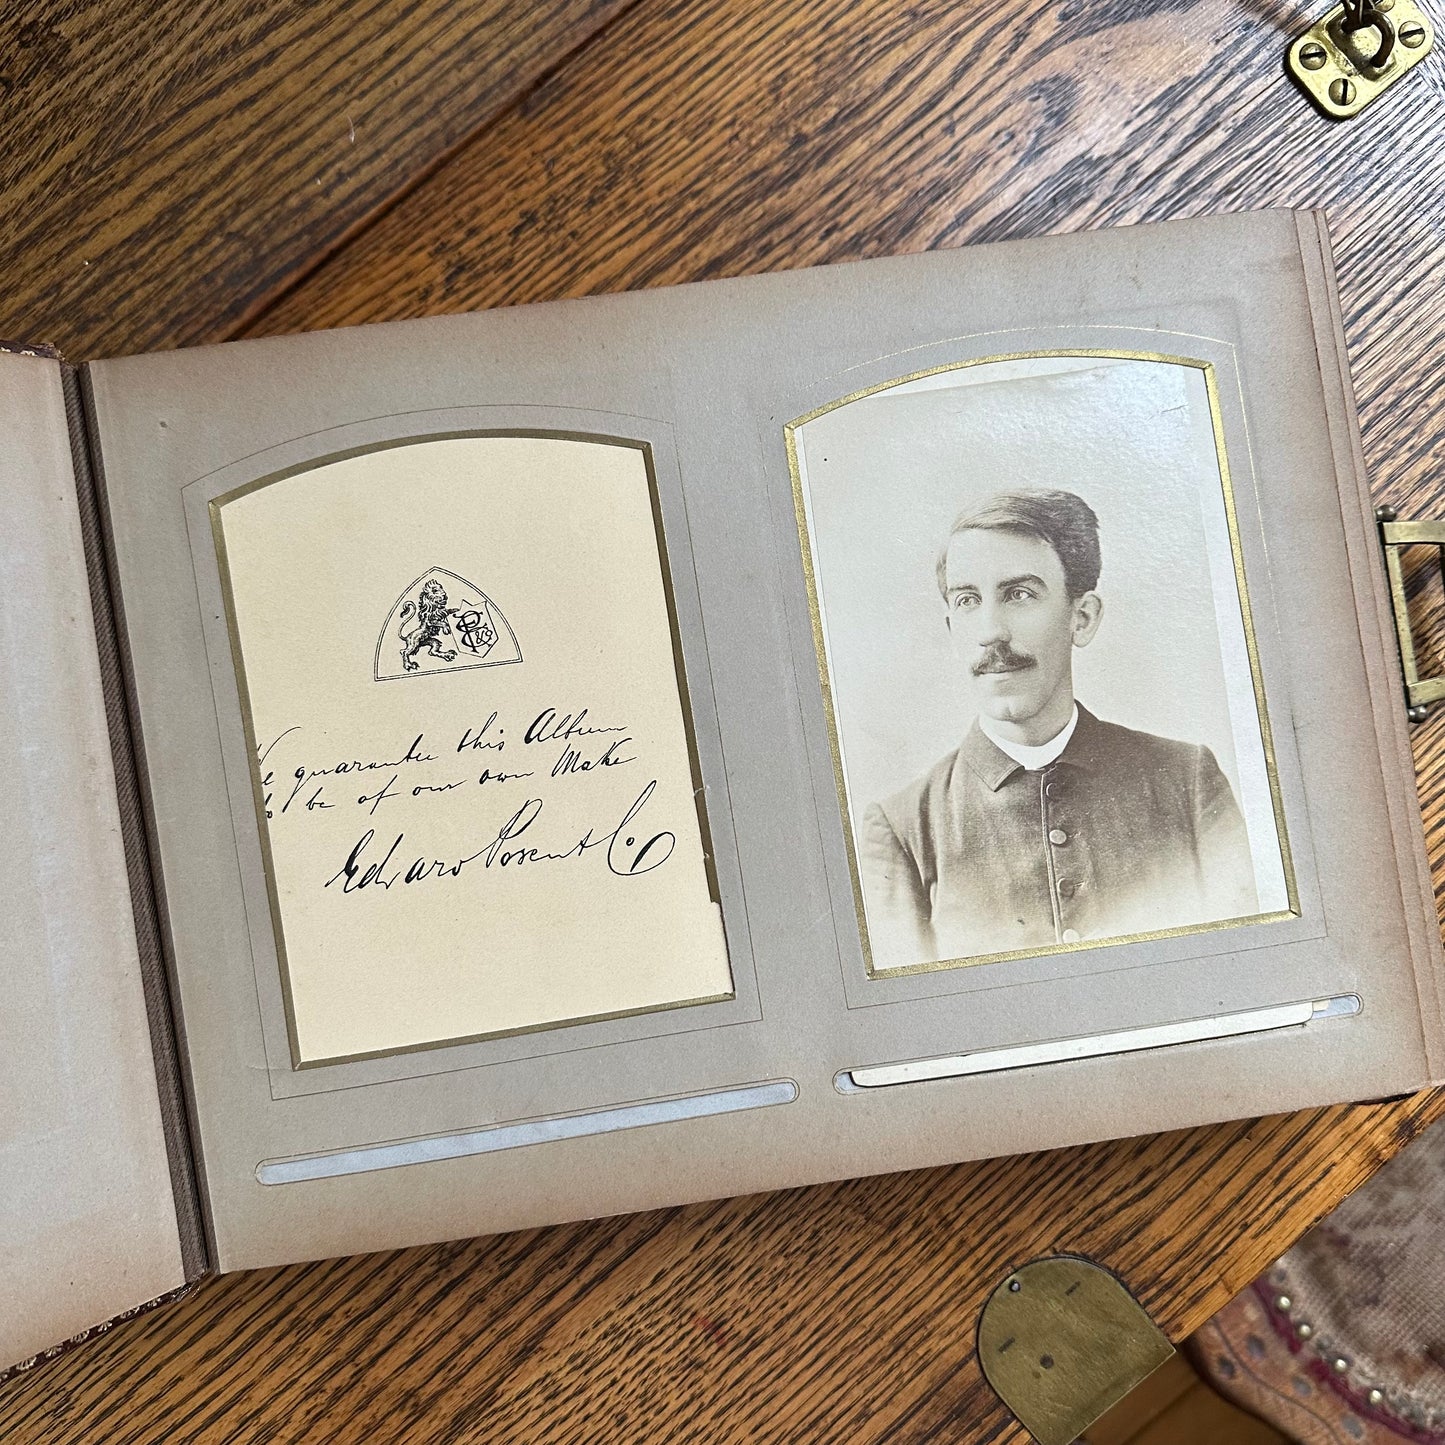 PC&Co
We guarantee this Album
to be of our own Make
Edward Posent Co